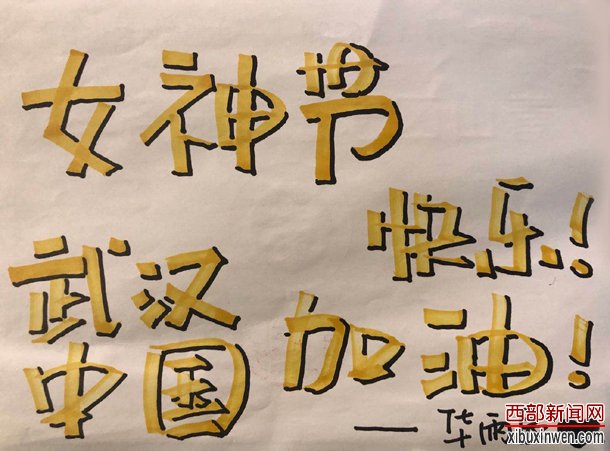 女神节
快乐!
武汉
中国 加油!
— 华
西部新闻网
xibuxinwen.com